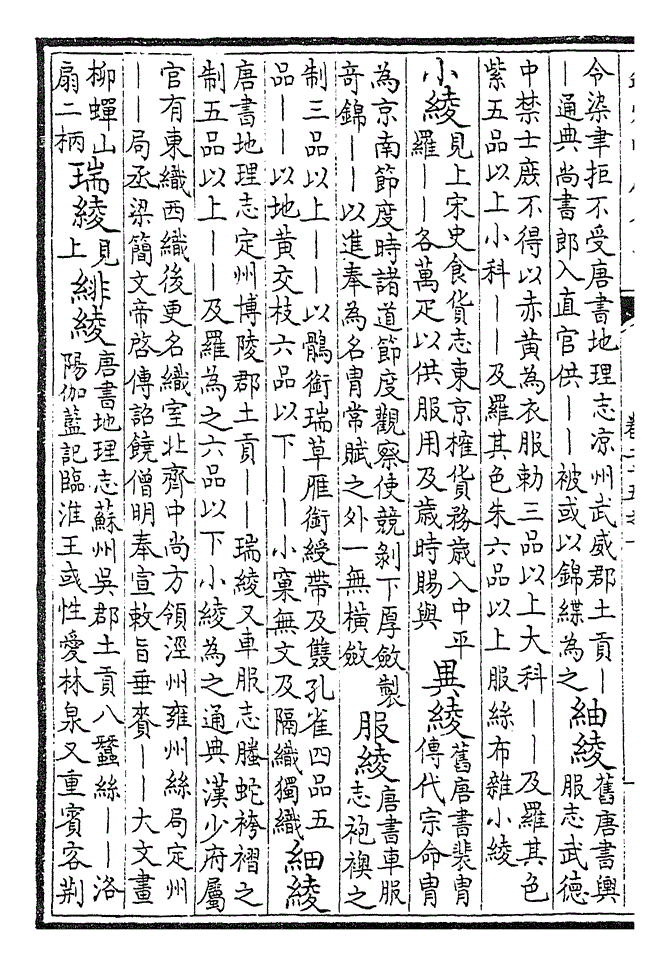 令染聿拒不受唐書地理志凉州武威郡土貢—
—通典尚書郎入直官供——被或以錦緤為之
紬綾
舊唐書輿
服志武德
中禁士庻不得以赤黄為衣服勅三品以上大科——及羅其色
紫五品以上小科——及羅其色朱六品以上服絲布雜小綾
小綾
見上宋史食貨志東京榷貨務歳入中平
羅——各萬疋以供服用及歳時賜與
異綾
舊唐書裴冑
傳代宗命冑
為京南節度時諸道節度觀察使競剝下厚斂製
奇錦——以進奉為名冑常賦之外一無橫斂
服綾
唐書車服
志袍襖之
制三品以上——以鶻銜瑞草雁銜綬帶及雙孔雀四品五
品——以地黄交枝六品以下——小窠無文及隔織獨織
細綾
唐書地理志定州博陵郡土貢——瑞綾又車服志螣蛇袴褶之
制五品以上——及羅為之六品以下小綾為之通典漢少府屬
官有東織西織後更名織室北齊中尚方領涇州雍州絲局定州
——局丞梁簡文帝啓傳詔饒僧明奉宣敕旨垂賚——大文畫
柳蟬山
扇二柄
瑞綾
見
上
緋綾
唐書地理志蘇州吳郡土貢八蠶絲——洛
陽伽藍記臨淮王彧性愛林泉又重賓客荆